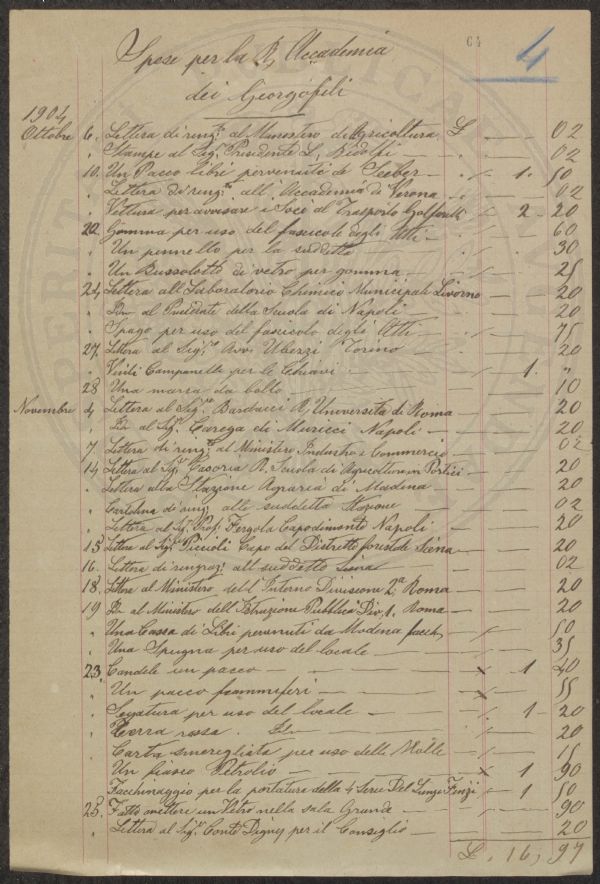 64
4
Spese per la R. Accademia
dei Georgofili
1904
Ottobre 6. Lettera di ringr. al Ministero di Agricoltura £ — 02
" Stampe al Sig. Presidente L. Ridolfi — 02
10. Un Pacco libri pervenuti da Seeber — 1. 50
Lettera di ringr. all'Accademia di Verona — 02
" Vettura per avvisare i Soci al Trasporto — 2 - 20
22. Gomma per uso del fascicolo degli Atti — 60
" Un pennello per la suddetta — 30
" Un Bussolotto di vetro per gomma — 25
24. Lettera all Laboratorio Chimico Municipale Livorno — 20
" Al Presidente della Scuola di Napoli — 20
" Spago per uso del fascicolo degli Atti — 75
27. Lettera al Sig. Avv Torino — 20
" Venti Campanelle per le Chiavi — 1. "
28 Una marca da bollo — 10
Novembre 4. Lettera al Sig. R. Università di Roma — 20
" al Sig. Carega di Muricci Napoli — 20
7. Lettera di ringr. al Ministero Industria e Commercio — 02
14. Lettera al Sig. Casoria R. Scuola di Agricoltura in Portici — 20
" Lettera alla Stazione Agraria di Modena — 20
" Cartolina di ring. alla suddetta Stazione — 02
" Lettera al Sig. Prof. Fergola Capodimonte Napoli — 20
15 Lettera al Sig. Piccioli Capo del Distretto forestale Siena — 20
16. Lettera di ringraz. al suddetto Siena — 02
18. Lettera al Ministero dell'Interno Divisione 2a Roma — 20
19 al Ministero dell'Istruzione Pubblica Div. 1. Roma — 20
" Una Cassa di Libri pervenuti da Modena facch. — 50
" Una Spugna per uso del locale — 35
23. Candele un pacco — 1 40
" Un pacco fiammiferi — 55
" Segatura per uso del locale — 1 - 20
" Terra rossa — 20
" Carta smerigliata per uso delle Molle — 15
" Un fiasco Petrolio — 1 90
" Facchinaggio per la portatura della 4 Serie Del Lungo Finzi — 1 50
25. Fatto mettere un Vetro nella sala Grande — 90
" Lettera al Sig. Conte Digny per il Consiglio — 20
£. 16, 97